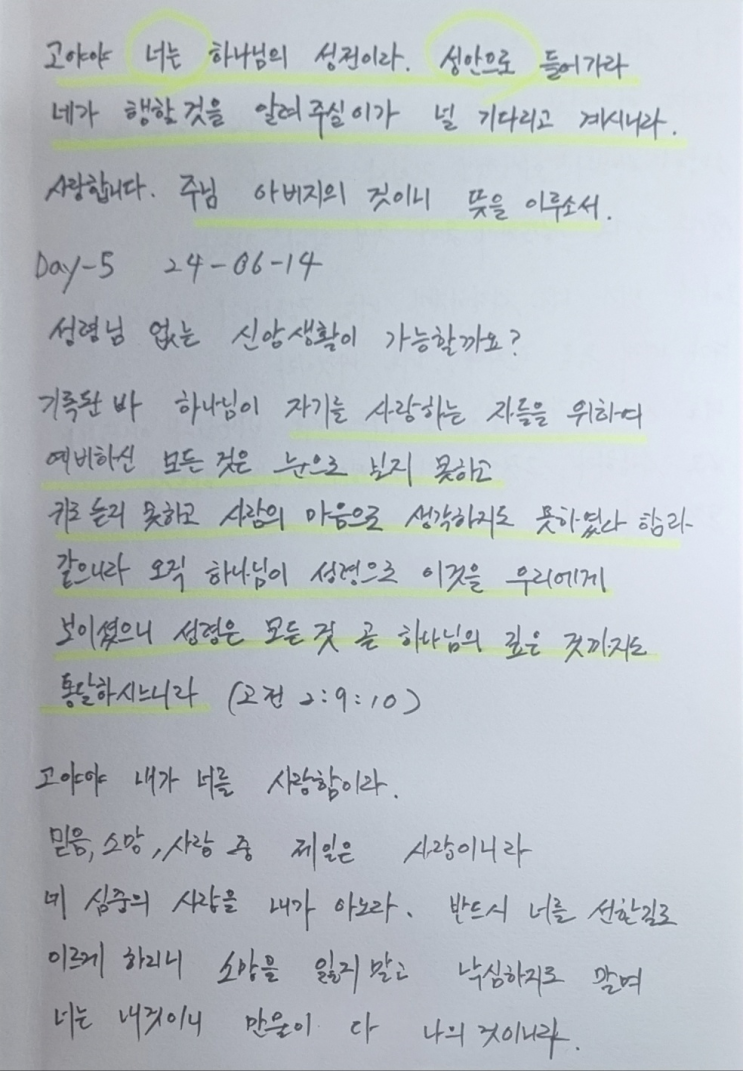 고야야 너는 하나님의 성전이라. 성안으로 들어가라
네가 행할 것을 알려 주실 이가 널 기다리고 계시니라.
사랑합니다. 주님 아버지의 것이니 뜻을 이루소서.
Day-5 24-06-14
성령님 없는 신앙생활이 가능할까요?
기록된 바 하나님이 자기를 사랑하는 자들을 위하여
예비하신 모든 것은 눈으로 보지 못하고
귀로 듣지 못하고 사람의 마음으로 생각하지도 못하였다 함과
같으니라 오직 하나님이 성령으로 이것을 우리에게
보이셨으니 성령은 모든 것 곧 하나님의 깊은 것까지도
통달하시느니라 (고전 2:9:10)
고야야 내가 너를 사랑함이라.
믿음, 소망, 사랑 중 제일은 사랑이니라
네 심중의 사랑을 내가 아노라. 반드시 너를 선한길로
이르게 하리니 소망을 잃지 말고 낙심하지도 말며
너는 내것이니 만물이 다 나의 것이니라.